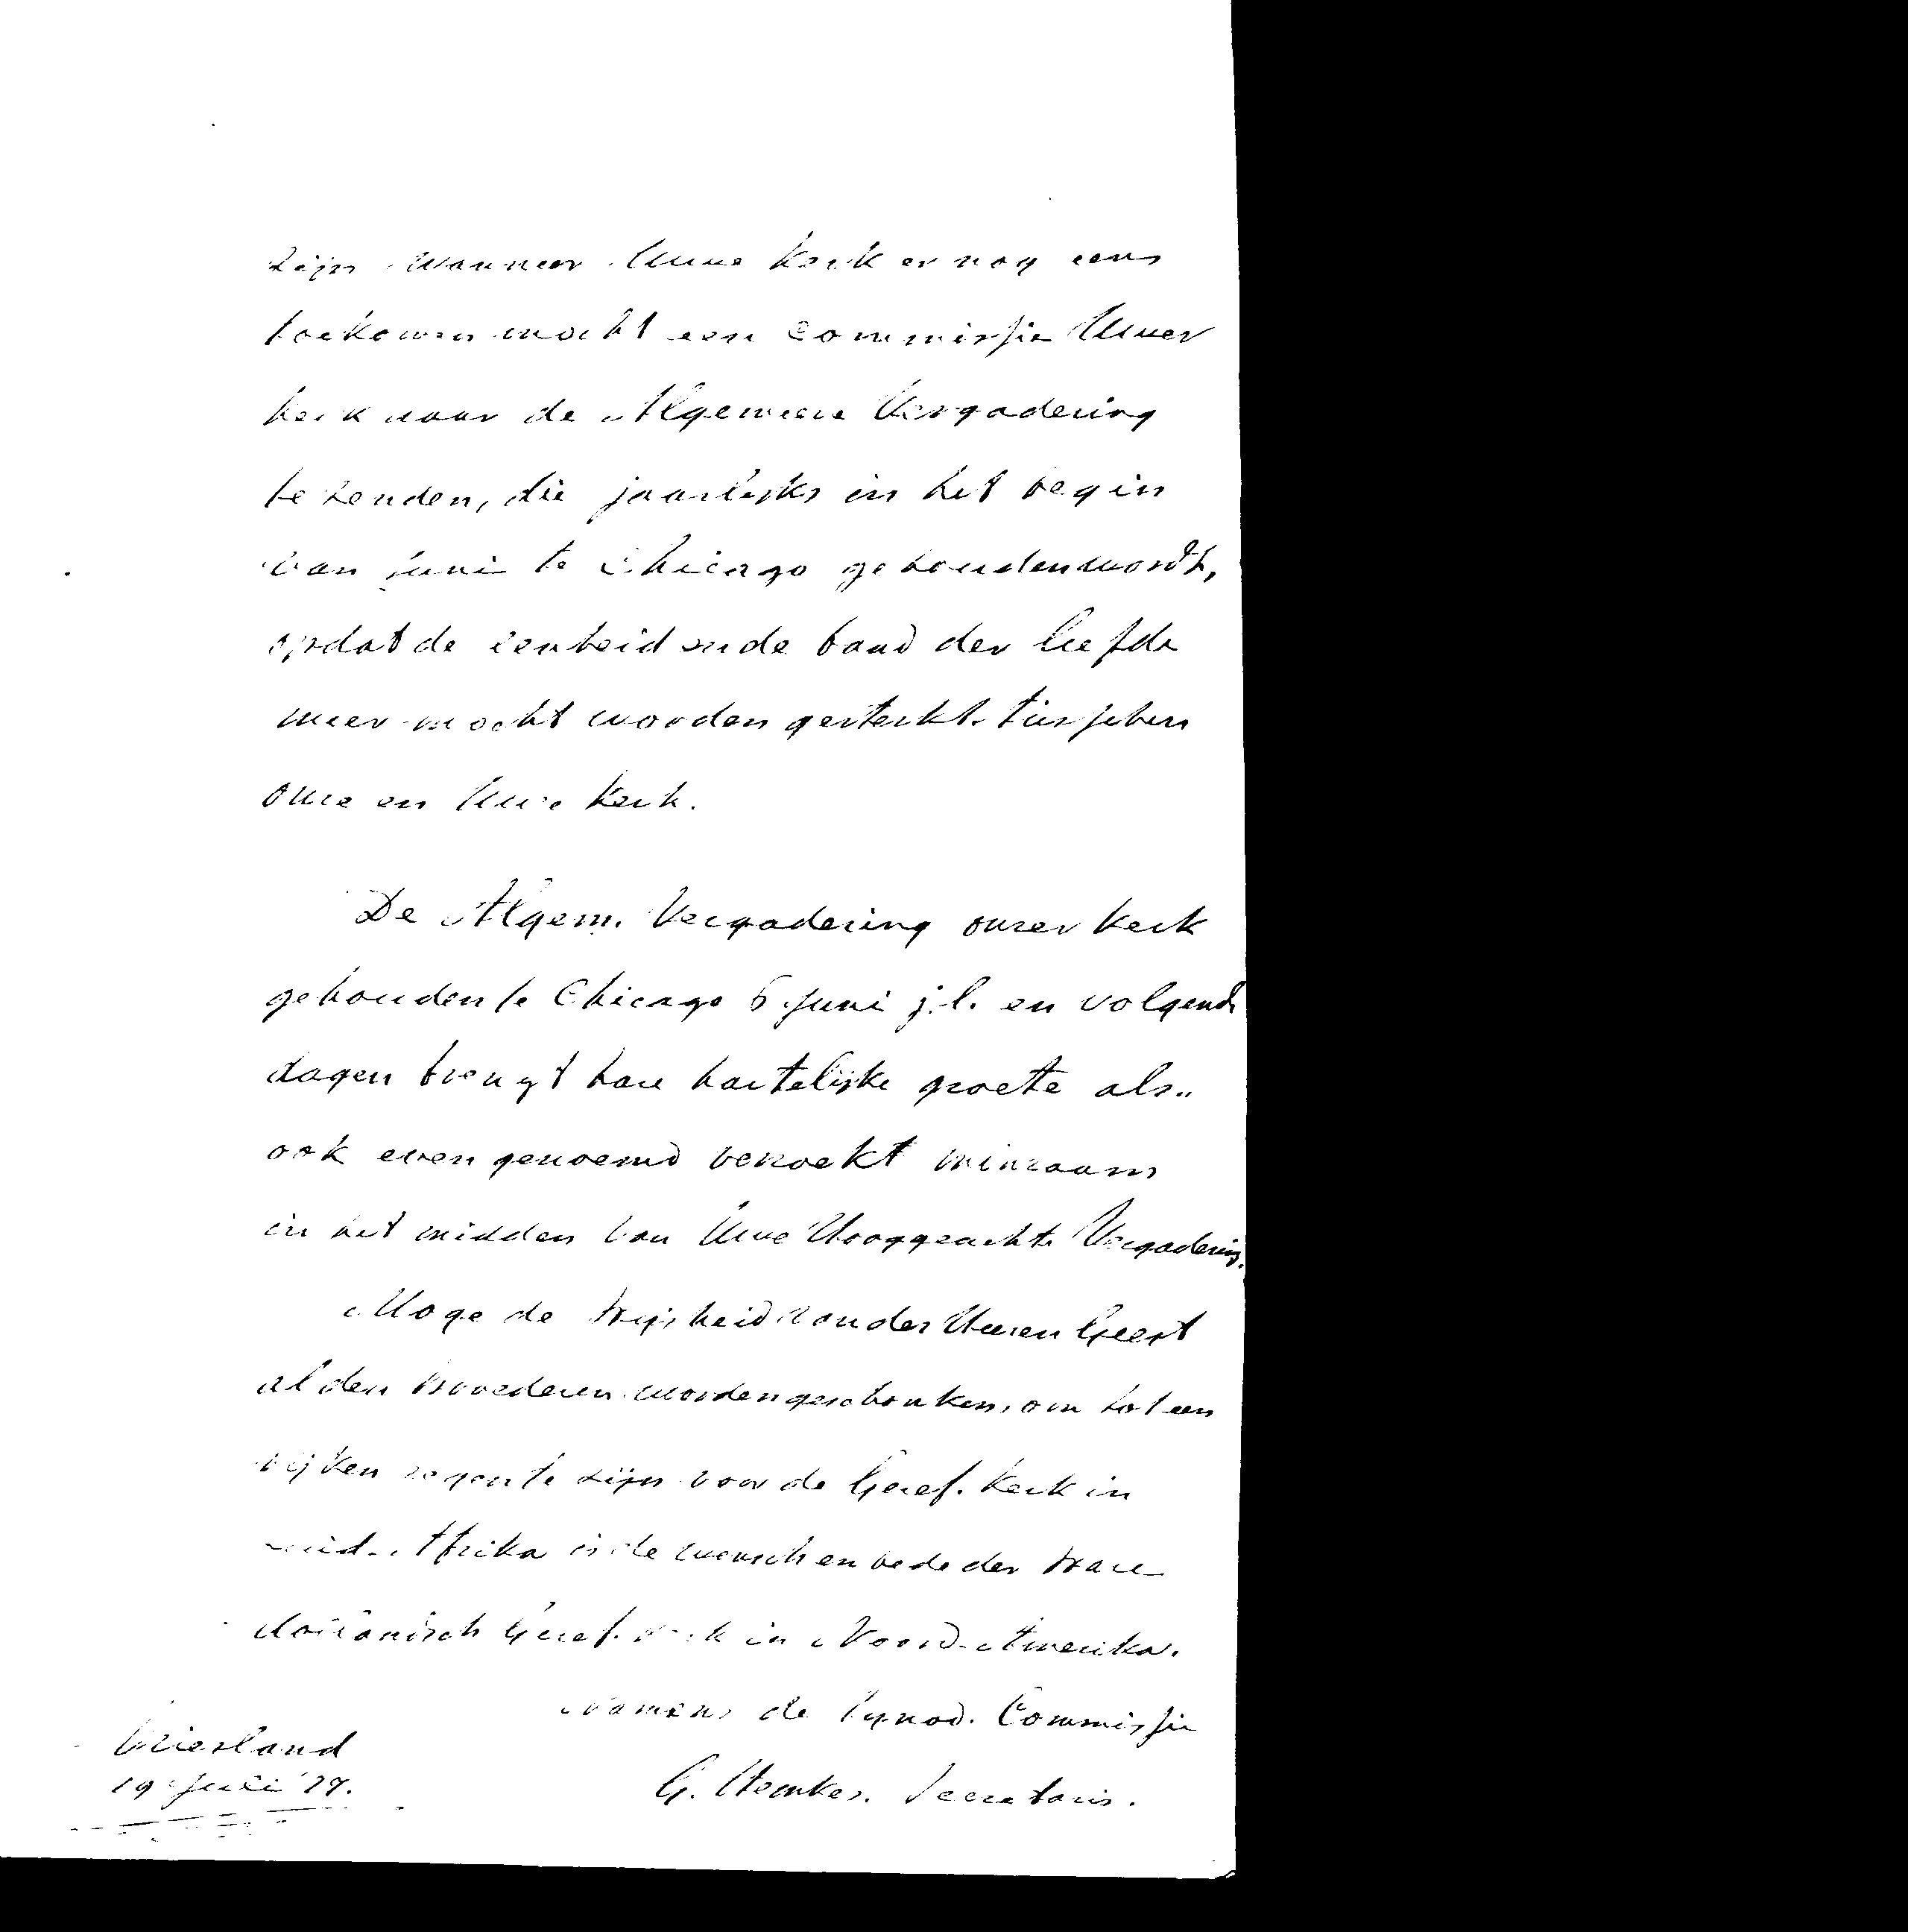 zijn wanneer Uwe Kerk er nog eens
toekomen mocht een Commissie Uwer
Kerk naar de Algemeene Vergadering
te zenden, die jaarlijks in het begin
van Juni te Chicago gehouden wordt,
opdat de eenheid en de band der liefde
meer mocht worden gesterkt tusschen
onze en Uwe Kerk.
De Algem. Vergadering onzer Kerk
gehouden te Chicago 6 Juni j.l. en volgende
dagen brengt hare hartelijke groete als..
ook even genoemd verzoekt minzaam
in het midden van Uwe Hooggeachte Vergadering.
Moge de Wijsheid van den Geest
al den Broederen worden geschonken, om tot een
rijken zegen te zijn voor de Geref. Kerk in
Zuid-Afrika is de wensch en bede der Hol-
landsch Geref. Kerk in Noord-Amerika.
Namens de Synod. Commissie
Vriesland
19 Juli '77.
G. Hemkes. Secretaris.